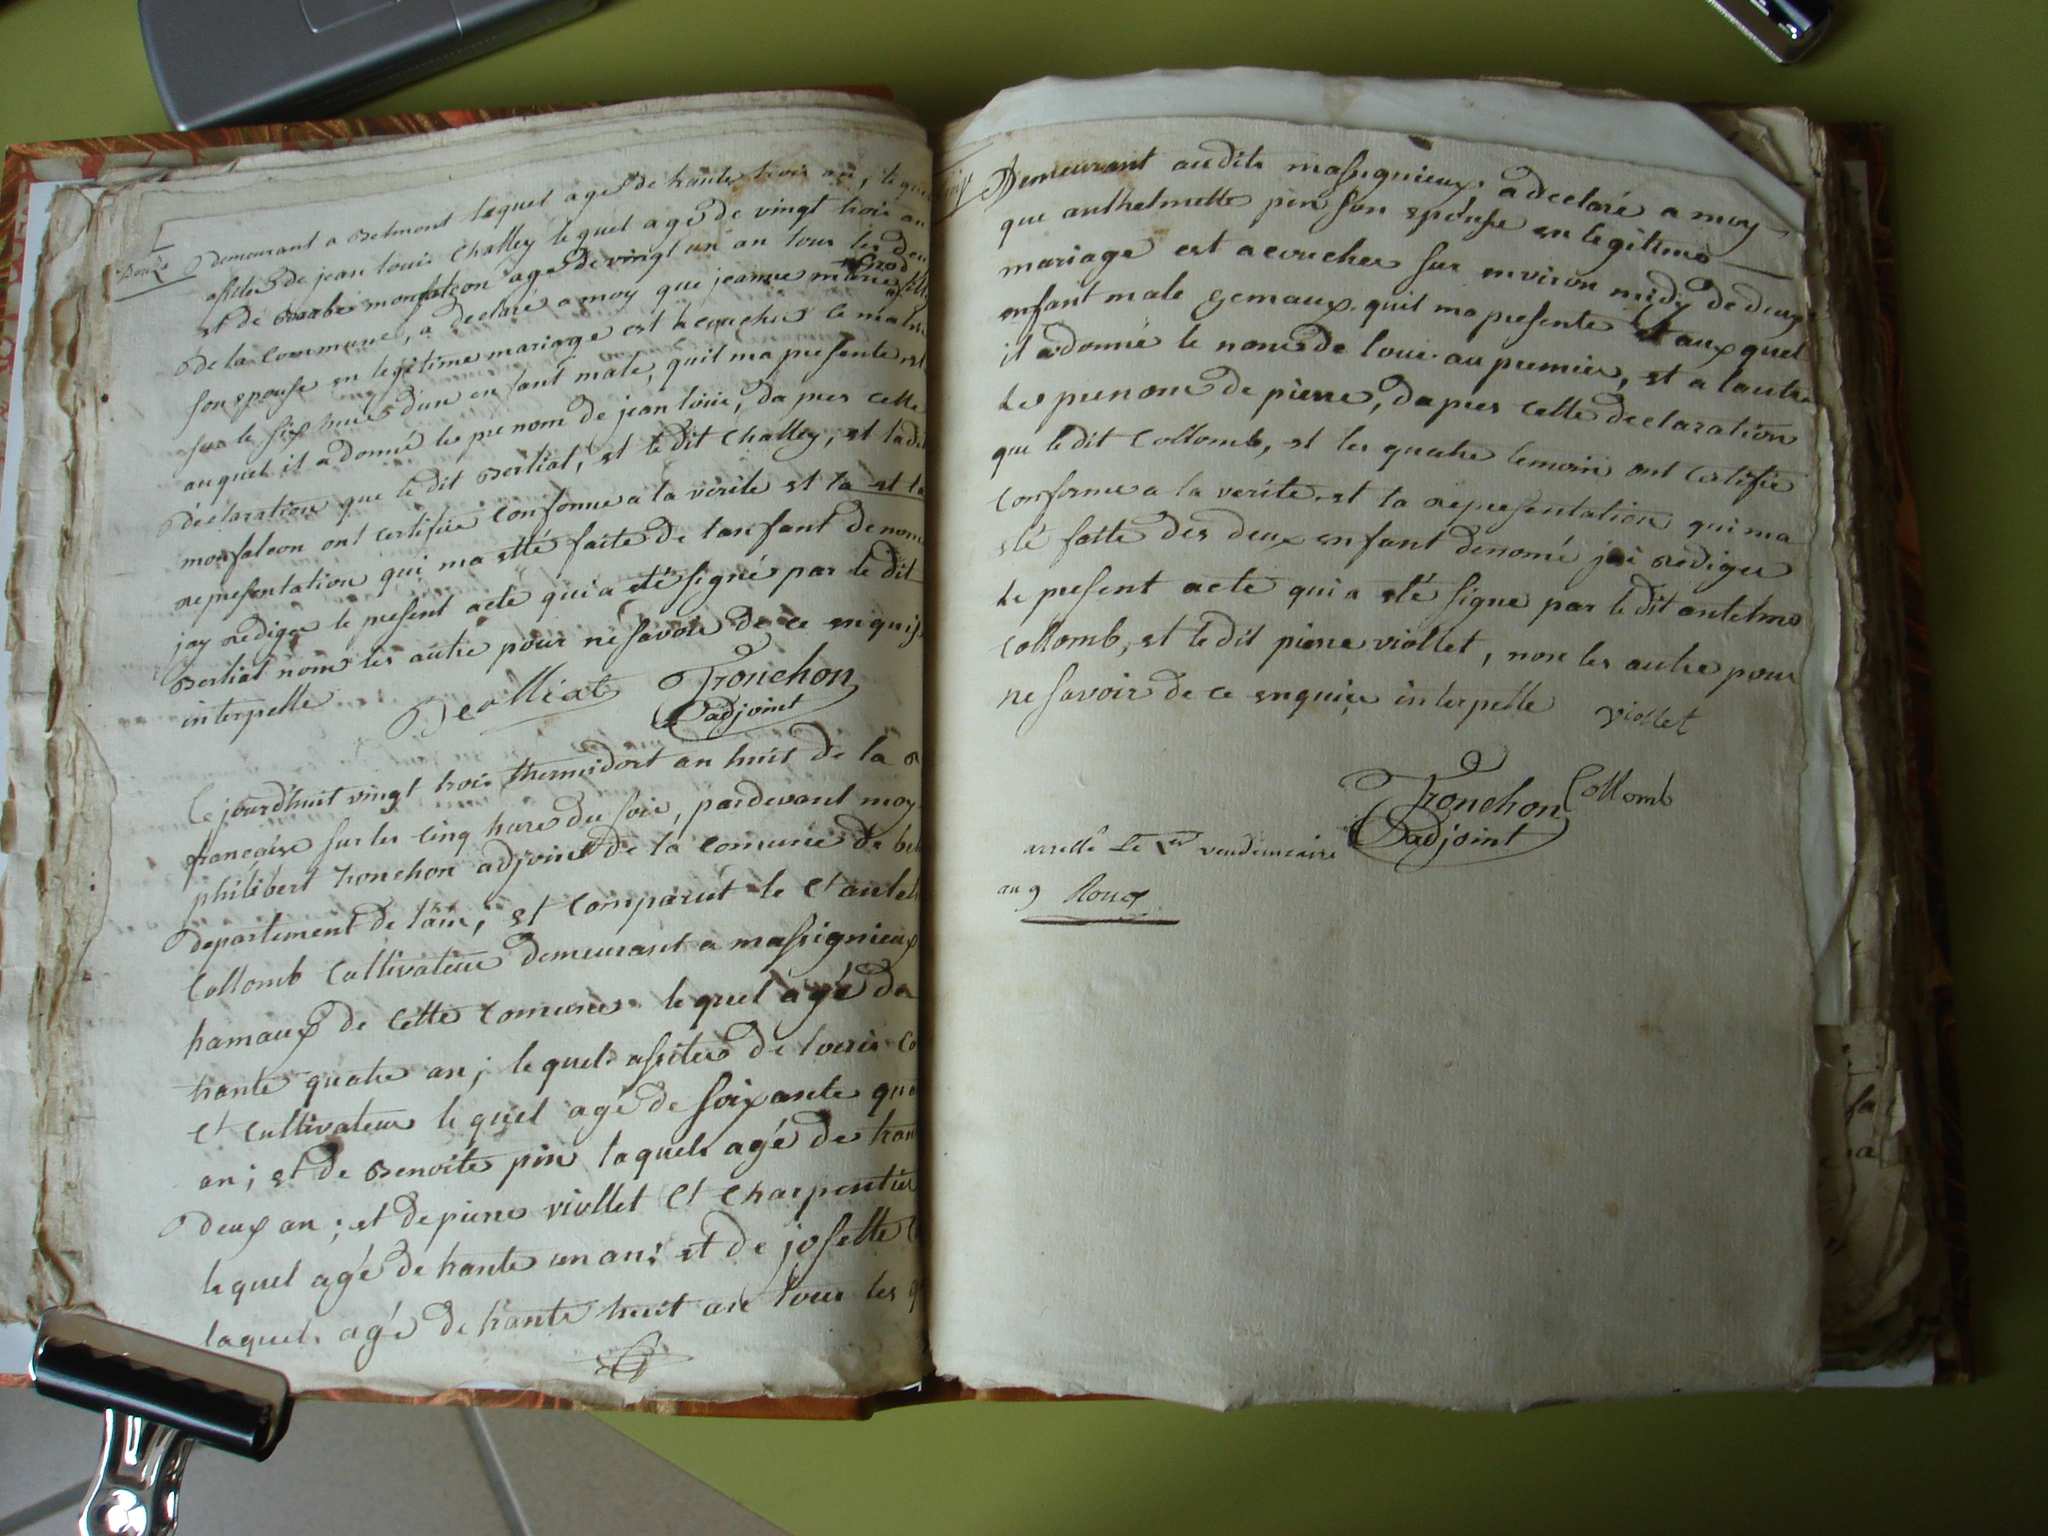 demeurant a Belmont lequel agé de trante trois an, lequel
assister de jean louis Challey lequel agé de vingt trois an
et de Barbe monfalcon agé de vingt un an tous les deu
de la Commune, a declaré a moy que jeanne
son epouse en legitime mariage est acoucher le matin
sur le six heures d'un enfant male, quil ma presente et
auquel il a donné les prenom de jean louis, dapres cette
déclaration que le dit Bertiat, et le dit Challey, et ladit
monfalcon ont certifié conforme a la verite et la et la
representation qui ma etté faite de lanfant denomé
jay rediger le present acte qui a eté signé par le dit
Bertiat nom les autre pour ne savoir de ce enquis
interpelle
Tronchon
adjoint
Ce jourd'huit vingt trois thermidort an huit de la
francaise sur les cinq heure du soir, pardevant moy
philibert tronchon adjoint de la comune de bel
departement de l'ain, et comparut le Ct antel
Collomb Cultivateur demeurant a massignieux
hamaux de cette comune lequel agé de
trante quatre an; lequel assiter de louis Co
Ct cultivateur lequel agé de soixante qua
an; et de Benoite pin laquel agé de tran
deux an; et de pierre viollet Ct Charpentier
lequel agé de trante un an; et de josette
laquel agé de trante huit an tous les q
Demeurant audits massignieux, a declaré a moy
que anthelmette pin son epouse en legitime
mariage est acoucher sur environ midy de deux
enfant male gemaux quil ma presente et aux quel
il a donné le nom de louis au premier, et a lautre
les prenom de pierre, dapres cette declaration
que le dit Collomb, et les quatre temoin ont certifie
conforme a la verite et la representation qui ma
eté faite des deux enfant denomé jai rediger
le present acte qui a eté signe par le dit antelme
Collomb, et le dit pierre viollet, non les autre pour
ne savoir de ce enquise interpelle viollet
Tronchon Collomb
adjoint
arretté Le 1er vendemiaire
an 9 Roux